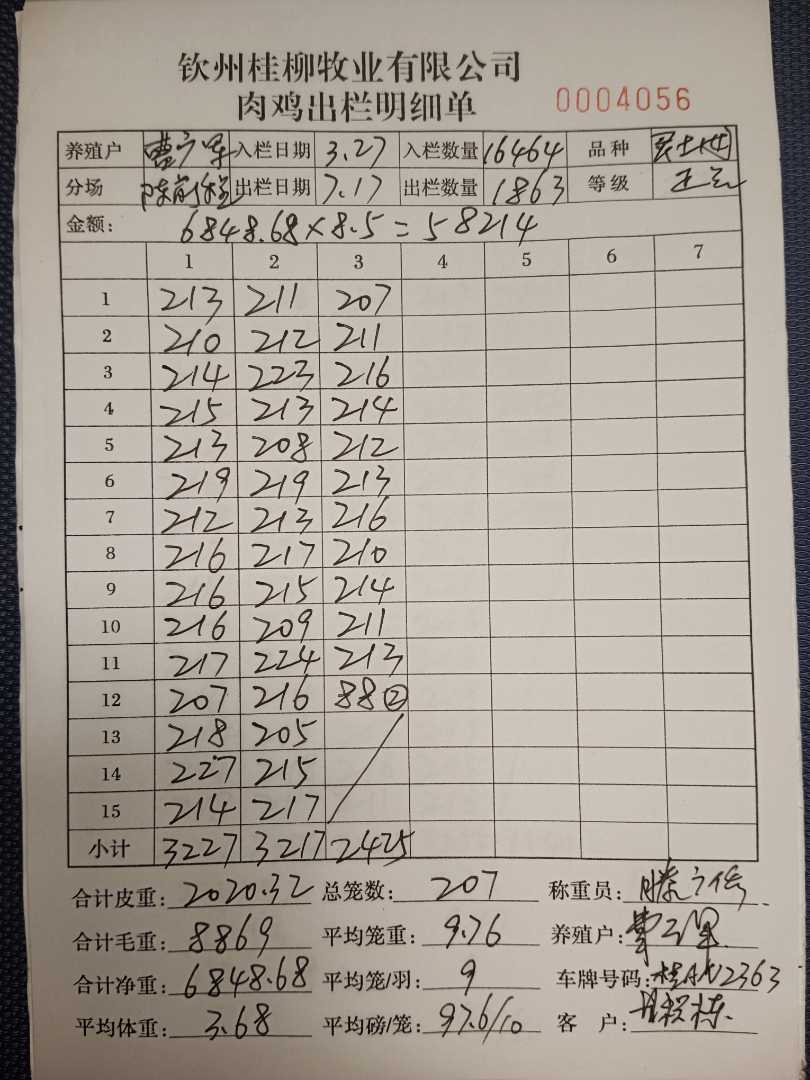 钦州桂柳牧业有限公司
肉鸡出栏明细单 0004056
养殖户 入栏日期 3.27 入栏数量 16464 品种
分场 出栏日期 7.17 出栏数量 1863 等级
金额: 6848.68×8.5=58214
1 2 3 4 5 6 7
1 213 211 207
2 210 212 211
3 214 223 216
4 215 213 214
5 213 208 212
6 219 219 213
7 212 213 216
8 216 217 210
9 216 215 214
10 216 209 211
11 217 224 213
12 207 216 88②
13 218 205
14 227 215
15 214 217
小计 3227 3217 2425
合计皮重: 2020.32 总笼数: 207 称重员:
合计毛重: 8869 平均笼重: 9.76 养殖户:
合计净重: 6848.68 平均笼/羽: 9 车牌号码: 2363
平均体重: 3.68 平均磅/笼: 97.6/10 客户: